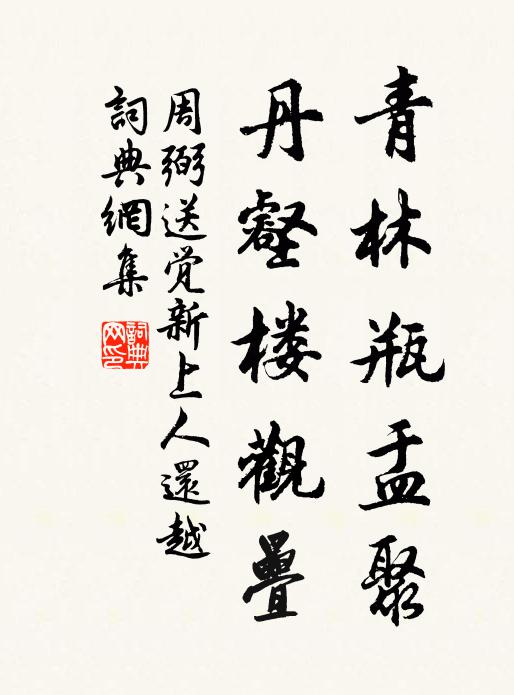 青林瓶盂聚
丹壑楼觀疊
周弼送觉新上人還越
詞典網集
詞典網印